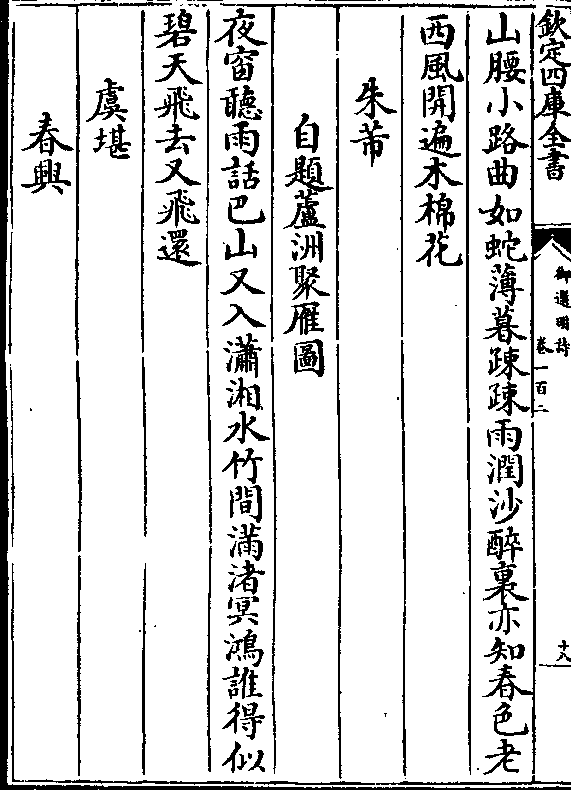 欽定四庫全書
御選明詩
卷一百二
十八
山腰小路曲如蛇薄暮踈踈雨潤沙醉裏亦知春色老
西風開遍木棉花
朱芾
自題蘆洲聚雁圖
夜窗聽雨話巴山又入瀟湘水竹間滿渚冥鴻誰得似
碧天飛去又飛還
虞堪
春興